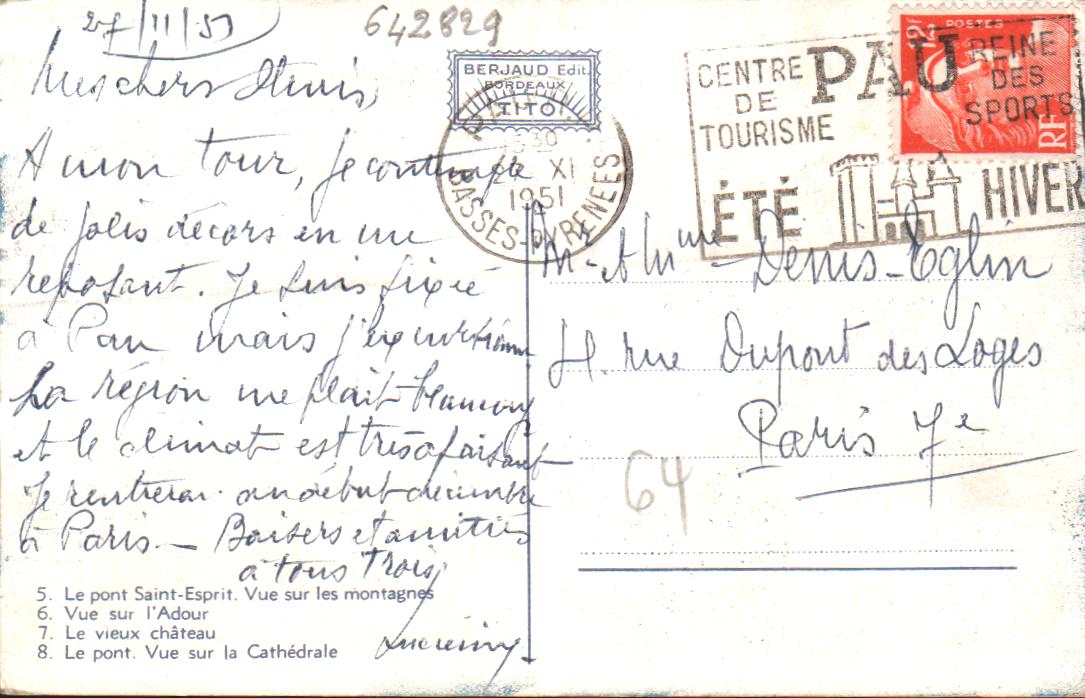 27/11/51
642829
Mes chers Denis,
A mon tour, je contemple
de jolis décors en me
reposant. Je suis fixée
à Pau mais j'excursionne
La région me plait beaucoup
et le climat est très apaisant
Je rentrerai au début décembre
à Paris — Baisers et amitiés
à tous Trois
5. Le pont Saint-Esprit. Vue sur les montagnes
6. Vue sur l'Adour
7. Le vieux château
8. Le pont. Vue sur la Cathédrale
BERJAUD Edit.
BORDEAUX
TITO
30
XI
1951
BASSES-PYRENEES
CENTRE
DE
TOURISME
PAU
REINE
DES
SPORTS
ÉTÉ
HIVER
12F
POSTES
RF
Mr et Mme Denis-Eglin
rue Dupont des Loges
Paris 7e
64